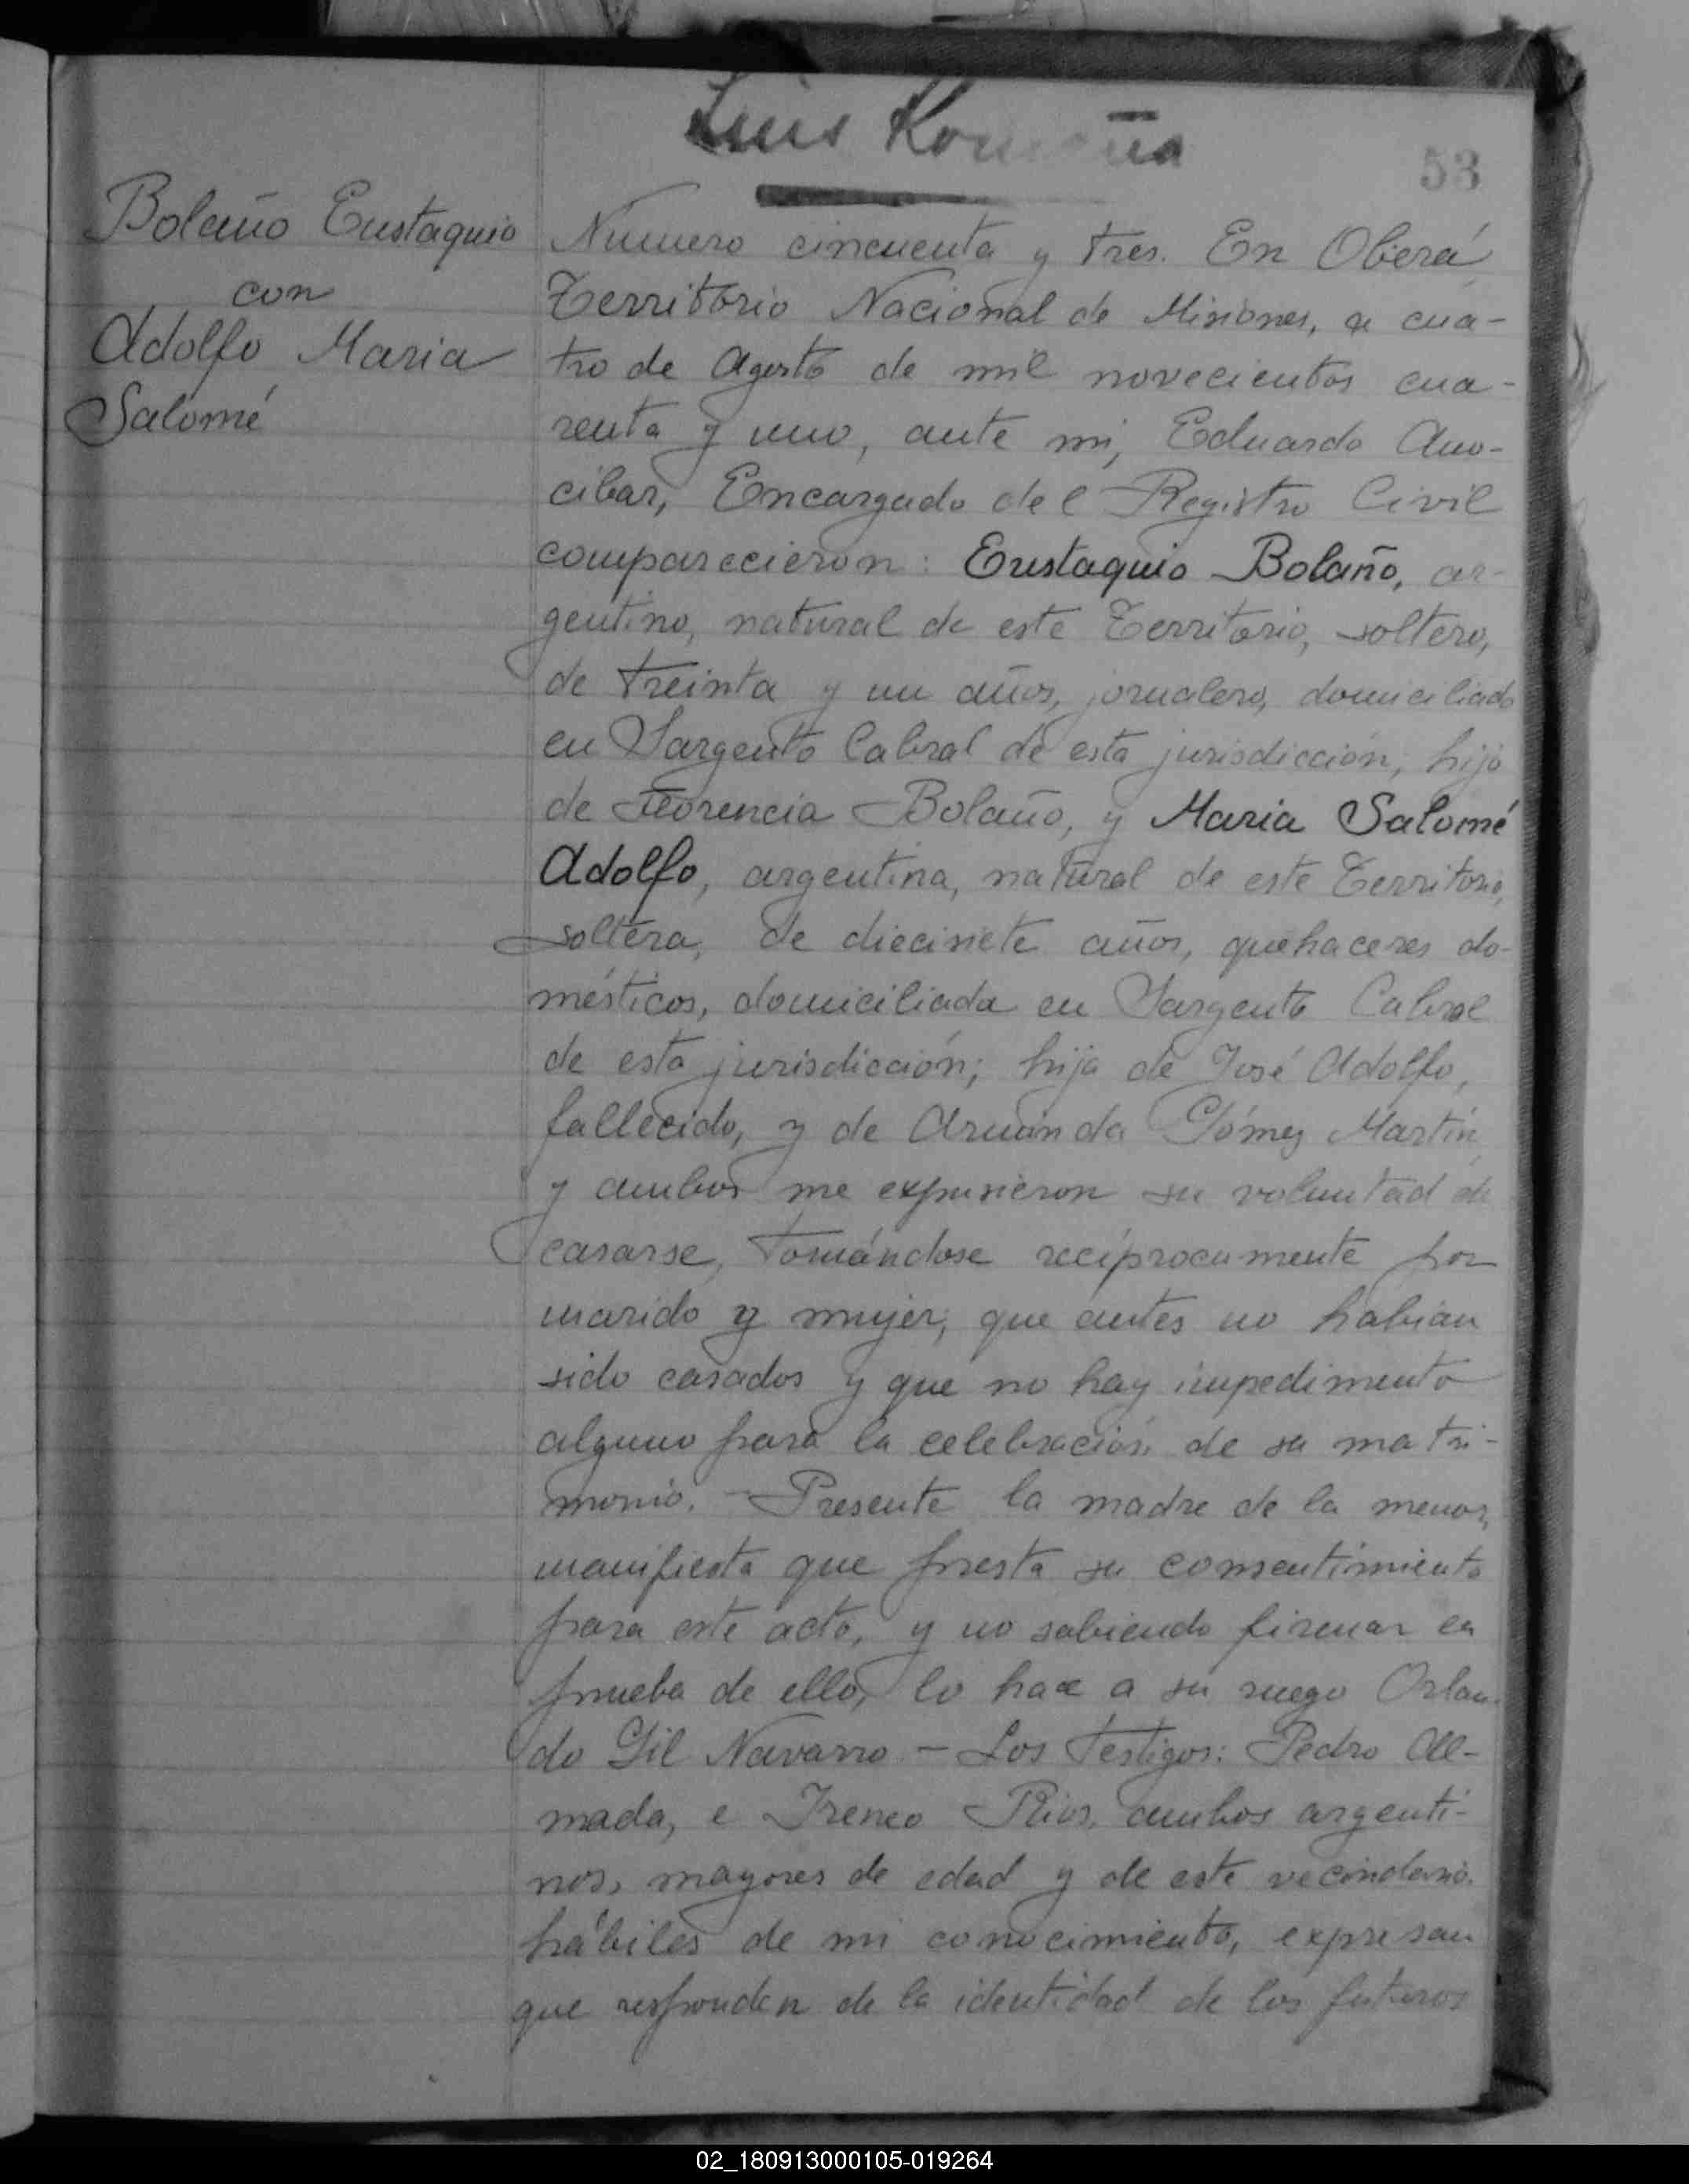 Luis
53
Bolaño Eustaquio
con
Adolfo Maria
Salomé
Numero cincuenta y tres. En Oberá
Territorio Nacional de Misiones, a cua-
tro de Agosto de mil novecientos cua-
renta y uno, ante mi, Eduardo Ano-
cibar, Encargado del Registro Civil
comparecieron: Eustaquio Bolaño, ar-
gentino, natural de este Territorio, soltero,
de treinta y un años, jornalero, domiciliado
en Sargento Cabral de esta jurisdicción; hijo
de Florencia Bolaño, y Maria Salomé
Adolfo, argentina, natural de este Territorio,
soltera, de diecisiete años, quehaceres do-
mésticos, domiciliada en Sargento Cabral
de esta jurisdicción; hija de José Adolfo,
fallecido, y de Armanda Gómez Martín,
y ambos me expusieron su voluntad de
casarse, tomándose recíprocamente por
marido y mujer; que antes no habian
sido casados y que no hay impedimento
alguno para la celebración de su matri-
monio. - Presente la madre de la menor,
manifiesta que presta su consentimiento
para este acto, y no sabiendo firmar en
prueba de ello, lo hace a su ruego Orlan-
do Gil Navarro - Los testigos: Pedro Al-
mada, e Ireneo Rios, ambos argenti-
nos, mayores de edad y de este vecindario.
hábiles de mi conocimiento, expresan
que responden de la identidad de los futuros
02_180913000105-019264